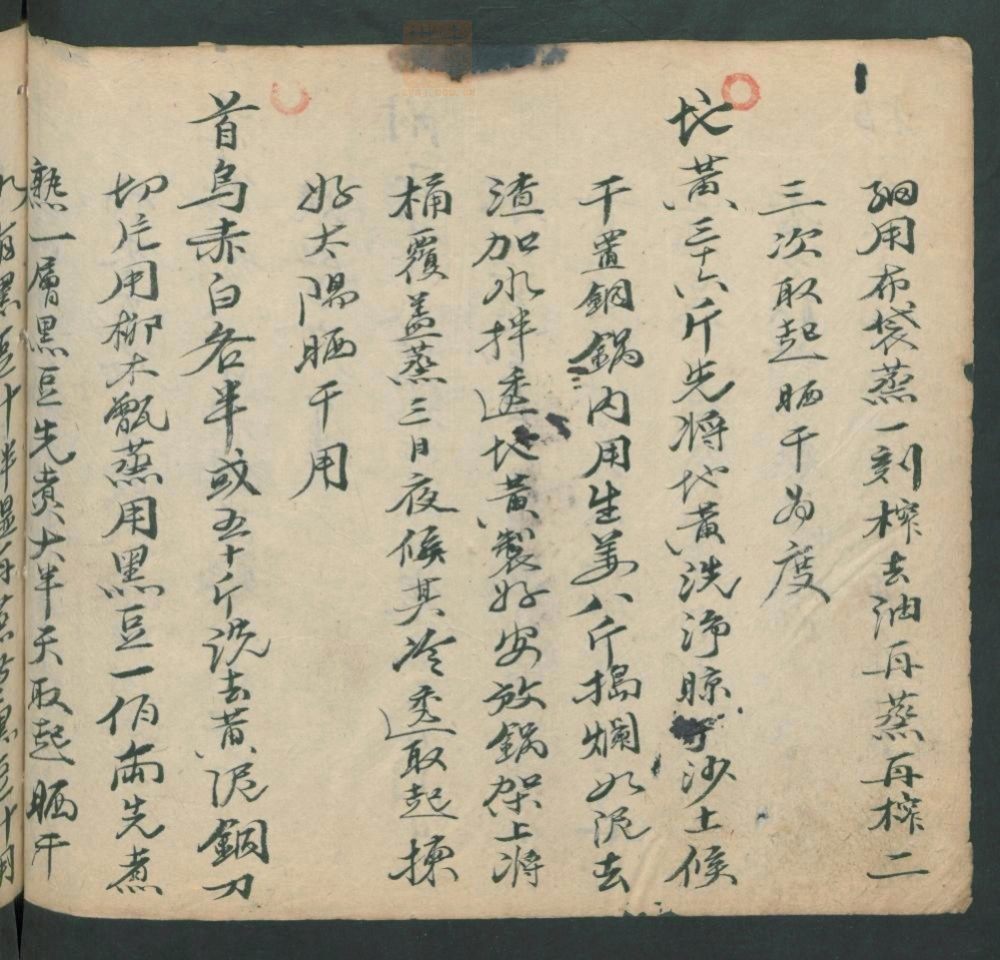 細用布袋蒸一刻榨去油再蒸再榨二
三次取起晒干為度
地黃三十六斤先將地黃洗淨晾干沙土候
干置銅鍋内用生姜八斤搗爛如泥去
渣加水拌透地黃製好安放鍋架上将
桶覆盖蒸三日夜候其冷透取起揀
好太陽晒干用
首烏赤白各半或五十斤洗去黄泥銅刀
切片用柳木甑蒸用黑豆一佰兩先煮
熟一層黑豆先煮大半天取起晒干